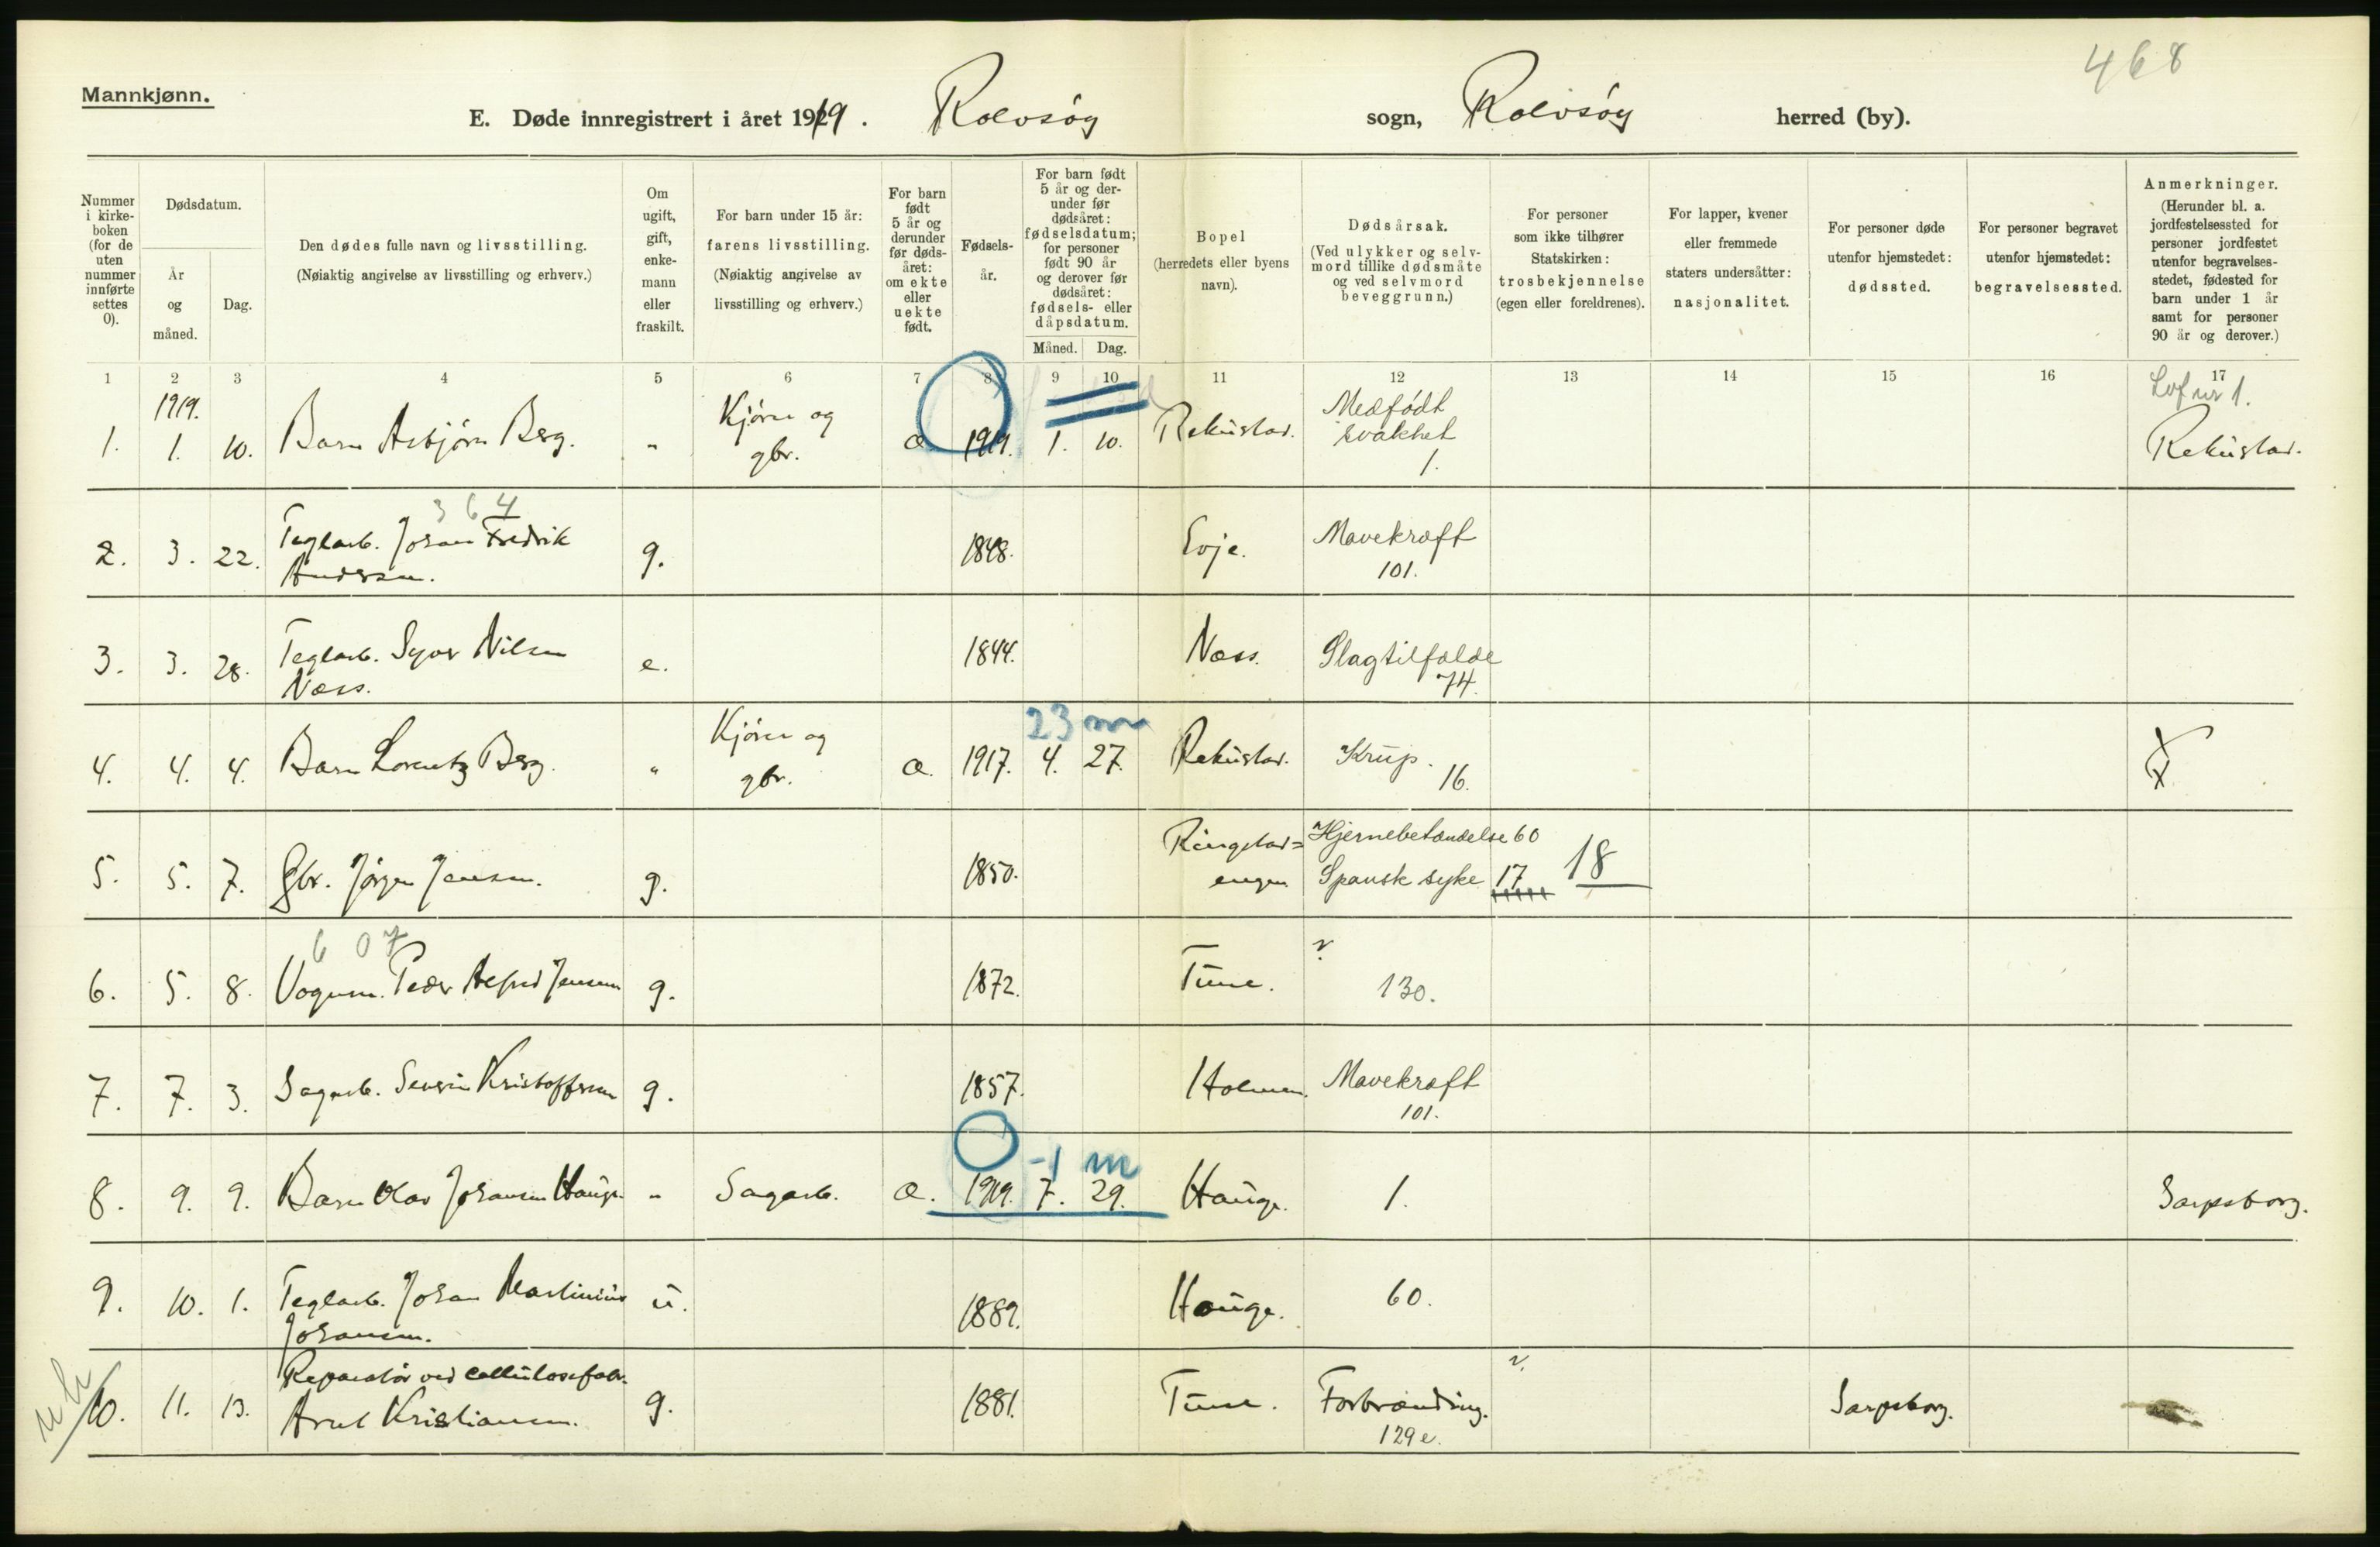 468
Mannkjønn.
E. Døde innregistrert i året 1919. Rolvsøy sogn, Rolvsøy herred (by).
Nummer i kirke-boken (for de uten nummer innførte settes 0).
Dødsdatum.
År og måned.
Dag.
Den dødes fulle navn og livsstilling.
(Nøiaktig angivelse av livsstilling og erhverv.)
Om ugift, gift, enke-mann eller fraskilt.
For barn under 15 år:
farens livsstilling.
(Nøiaktig angivelse av livsstilling og erhverv.)
For barn født 5 år og derunder før døds-året: om ekte eller uekte født.
Fødsels-år.
For barn født 5 år og der-under før dødsåret: fødselsdatum; for personer født 90 år og derover før dødsåret: fødsels- eller dåpsdatum.
Måned. Dag.
Bopel
(herredets eller byens navn).
Dødsårsak.
(Ved ulykker og selv-mord tillike dødsmåte og ved selvmord beveggrunn.)
For personer som ikke tilhører Statskirken:
trosbekjennelse
(egen eller foreldrenes).
For lapper, kvener eller fremmede staters undersåtter:
nasjonalitet.
For personer døde utenfor hjemstedet:
dødssted.
For personer begravet utenfor hjemstedet:
begravelsessted.
Anmerkninger.
(Herunder bl. a. jordfestelsessted for personer jordfestet utenfor begravelses-stedet, fødested for barn under 1 år samt for personer 90 år og derover.)
1 2 3 4 5 6 7 8 9 10 11 12 13 14 15 16 17
1919.
1. 1. 10. Barn Asbjørn Berg. " Kjører og gbr. æ 1919. 1. 10. Rekustad. Medfødt svakhet 1. Rekustad.
364
2. 3. 22. Teglarb. Johan Fredrik Andersen. g. 1848. Evje. Mavekræft 101.
3. 3. 28. Teglarb. Syver Nilsen Næss. e. 1844. Næss. Slagtilfælde 74.
23 m
4. 4. 4. Barn Lorentz Berg. " Kjører og gbr. æ. 1917. 4. 27. Rekustad. Krup. 16.
5. 5. 7. Gbr. Jørgen Jensen. g. 1850. Ringstad=engen Hjernebetændelse 60 Spansk syke 17 18
6 07
6. 5. 8. Vognm. Peder Alfred Jensen g. 1872. Tune. ? 130.
7. 7. 3. Sagarb. Severin Kristoffersen g. 1857. Holmen. Mavekræft 101.
-1 m
8. 9. 9. Barn Olav Johansen Hauge. " Sagarb. æ. 1919. 7. 29. Hauge. 1. Sarpsborg.
9. 10. 1. Teglarb. Johan Martinius Johansen. u. 1889. Hauge. 60.
10. 11. 13. Reparatør ved cellulosefabr. Arnt Kristiansen. g. 1881. Tune. Forbrænding. 129e. Sarpsborg.